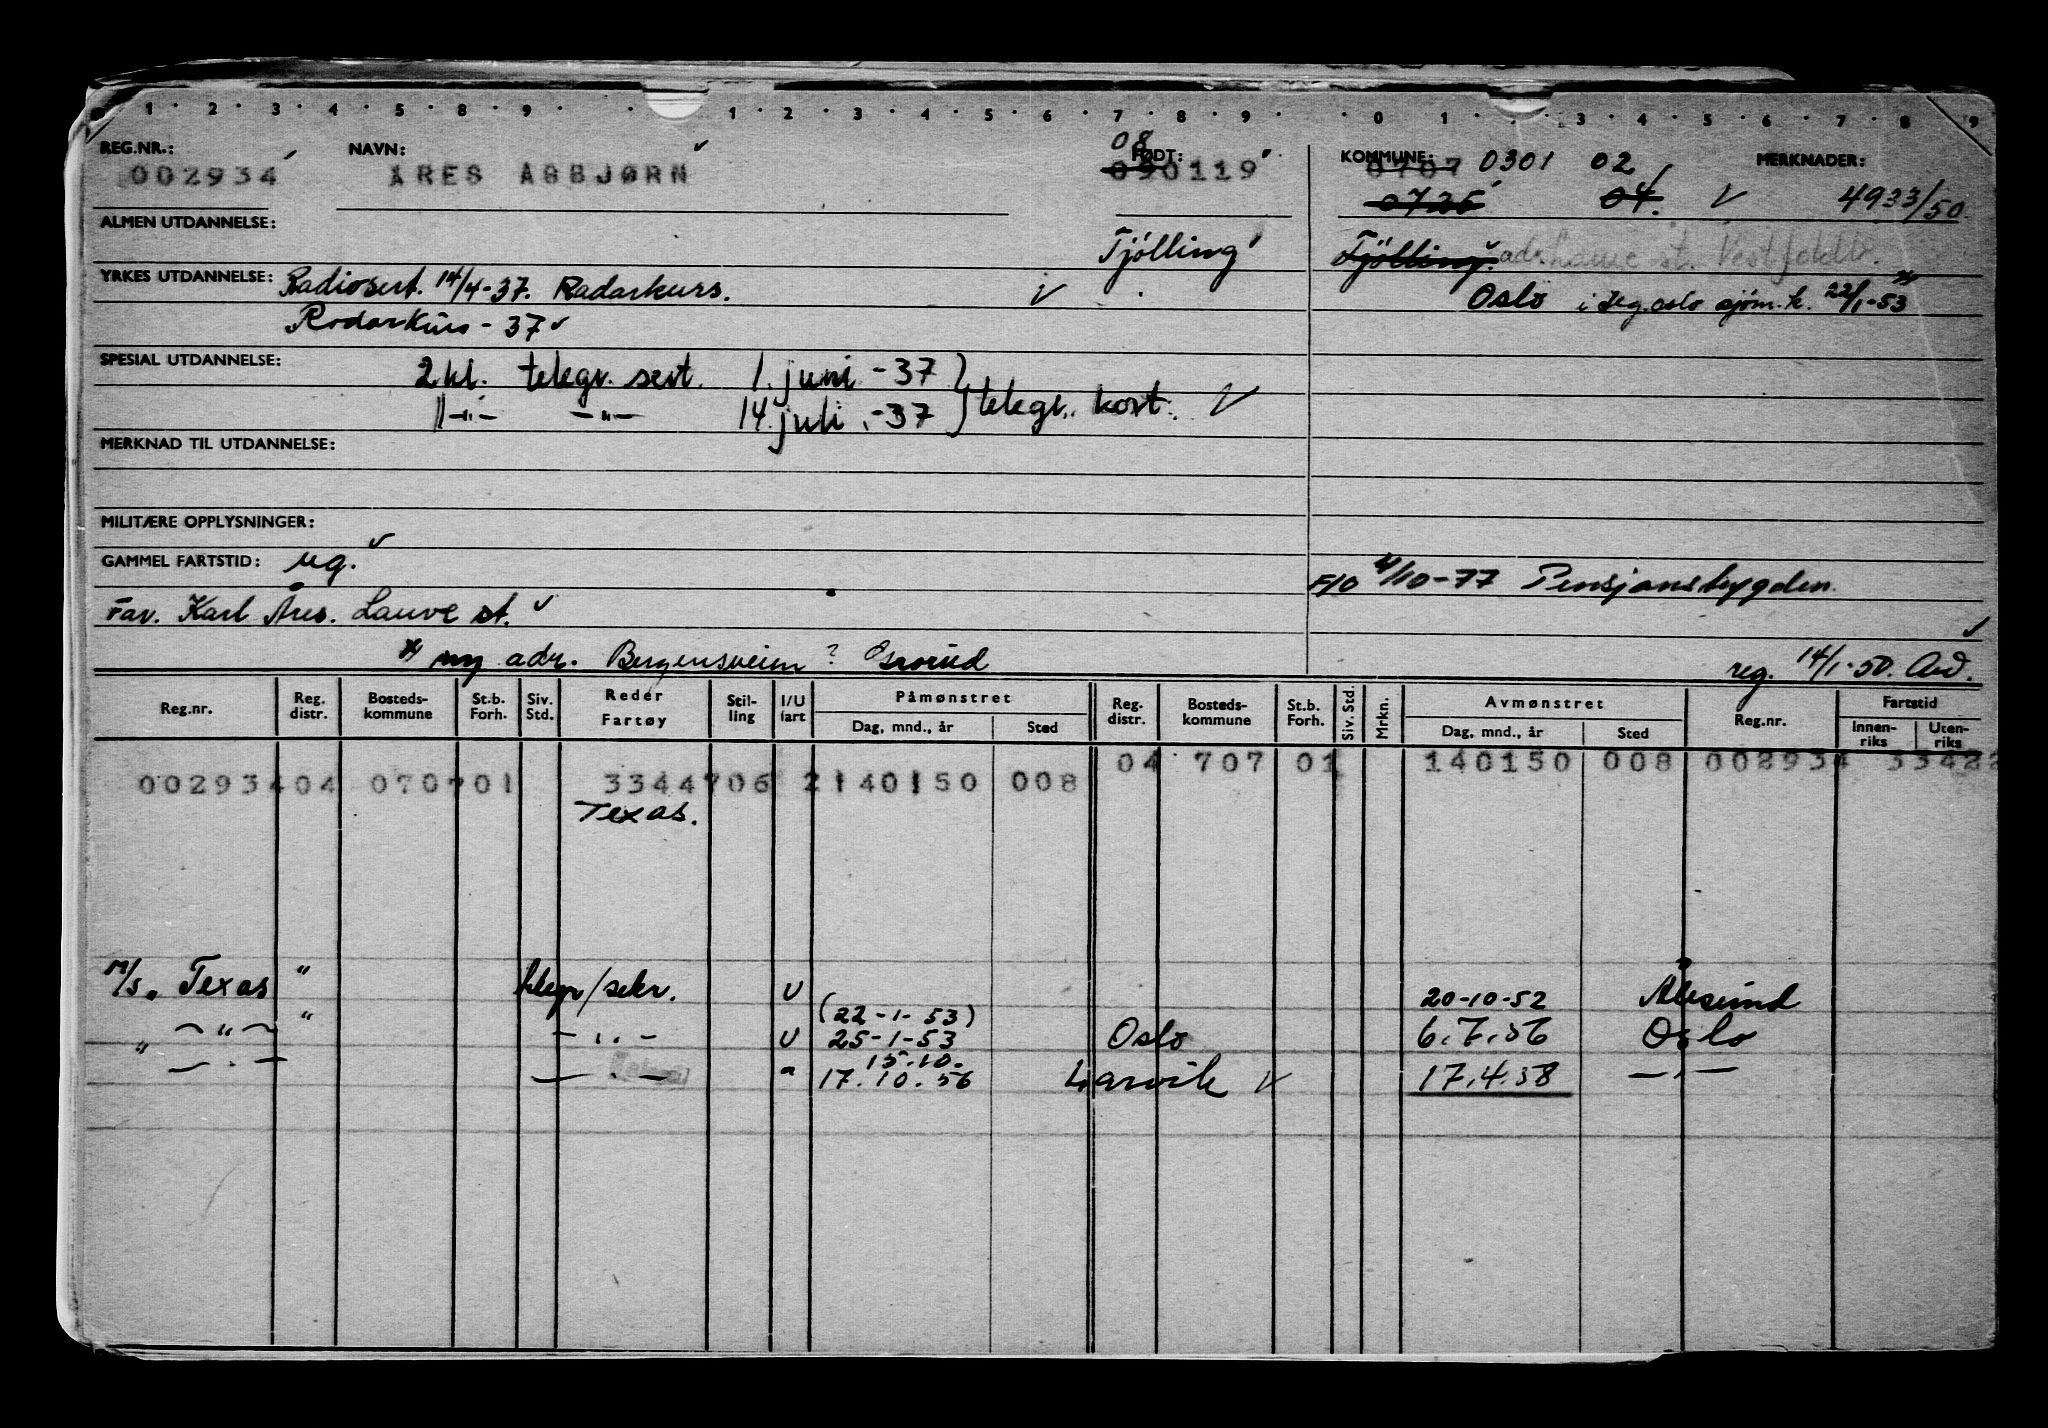 1 · 2 · 3 · 4 · 5 · 8 · 9 · · · 1 · 2 · 3 · 4 · 5 · 6 · 7 · 8 · 9 · 0 · 1 · · · 3 · 4 · 5 · 6 · 7 · 8 · 9
REG.NR.: NAVN: FØDT: 08 KOMMUNE: 0301 02 MERKNADER:
002934 ÅRES ASBJØRN 090119 0707
0726 04. 4933/50
ALMEN UTDANNELSE: Tjölling Tjölling. adr. Lauve st. Vestfoldb.
YRKES UTDANNELSE: Radiosert. 14/4-37. Radarkurs. Oslo i flg. oslo sjøm.k. 22/1-53 x
Radarkurs - 37
SPESIAL UTDANNELSE: 2 kl. telegr. sert. 1. juni - 37 }
"-"- -"- 14. juli -37 } telegr. kort.
MERKNAD TIL UTDANNELSE:
MILITÆRE OPPLYSNINGER:
GAMMEL FARTSTID: ug.
F10 4/10-77 Pensjonstrygden
Far. Karl Åres. Lauve st.
x ny adr. Bergensveien ? Grorud reg. 14/1-50.
Reg.nr. Reg. distr. Bosteds-kommune St.b. Forh. Siv. Std. Reder Fartøy Stil-ling I/U fart Påmønstret Dag, mnd., år Sted Reg. distr. Bosteds-kommune St.b. Forh. Siv. Std. Mrkn. Avmønstret Dag, mnd., år Sted Reg.nr. Fartstid Innen-riks Uten-riks
00293404 070701 3344706 2140150 008 04 707 01 140150 008 002934 33422
Texas.
M/S. Texas " telegr/sekr. U 20-10-52 Ålesund
(22-1-53)
-"- " -"- U 25-1-53 Oslo 6.7.56 Oslo
15.10.
" -"- -"- " 17.10.56 Larvik 17.4.58 -"-